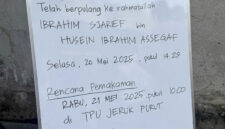 Telah berpulang ke rahmatullah
IBRAHIM SJARIEF bin
HUSEIN IBRAHIM ASSEGAF
Selasa, 20 Mei 2025, pukul 14.29
Rencana Pemakaman
RABU, 21 MEI 2025, pukul 10.00
di TPU JERUK PURUT